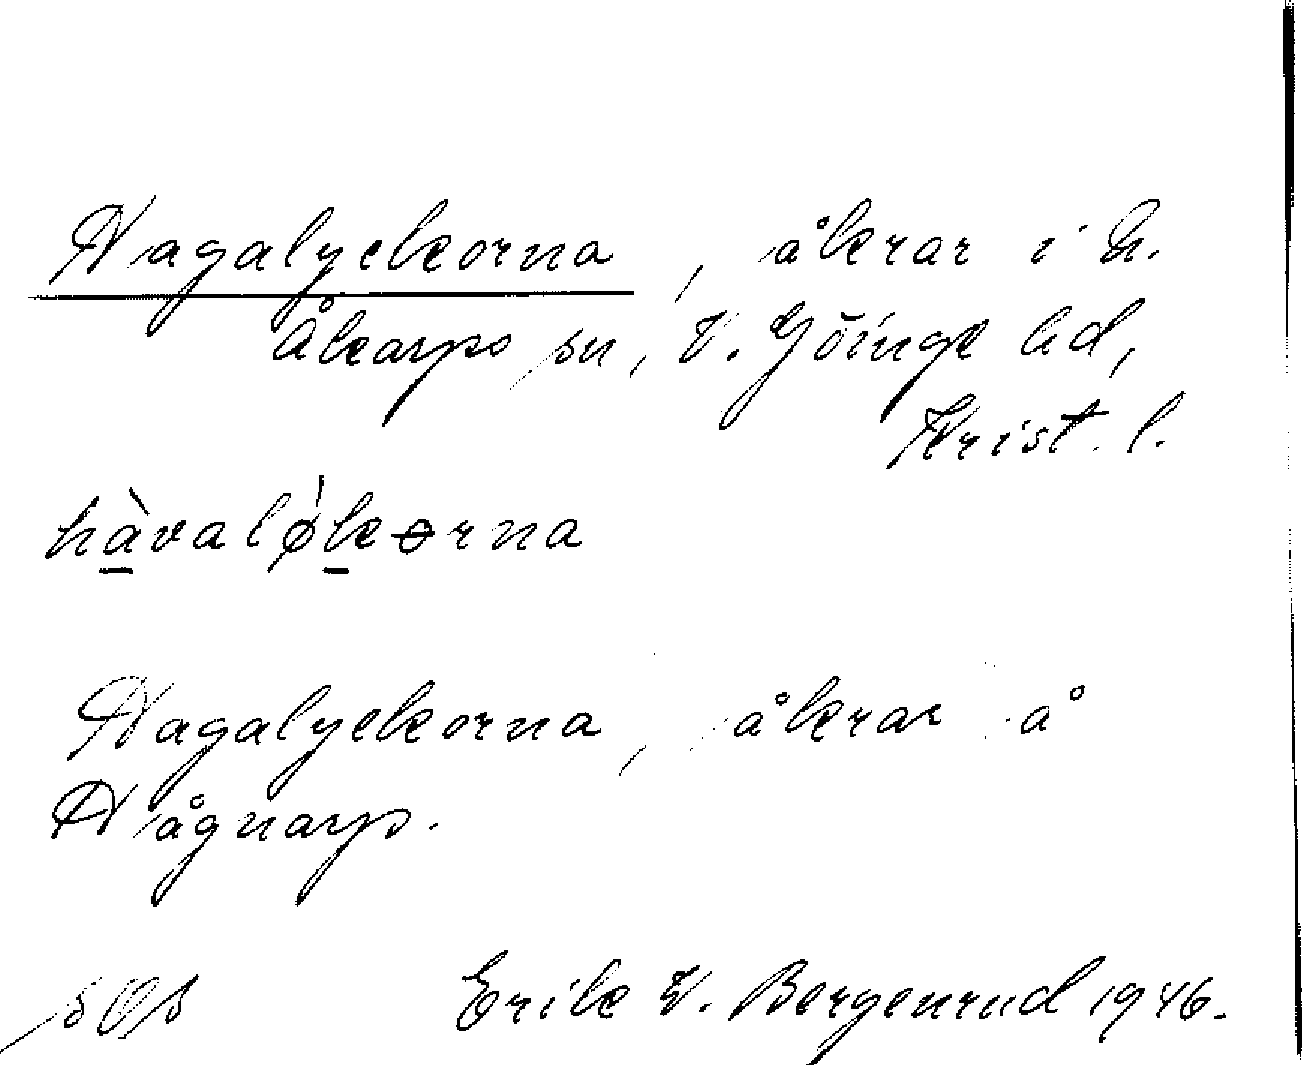 Hagalyckorna, åkrar i N.
Åkarps sn, V. Göinge hd,
Krist. l.
hàvalø̀kɵrna
Hagalyckorna, åkrar å
Hågnarp.
Erik V. Bergenrud 1946.